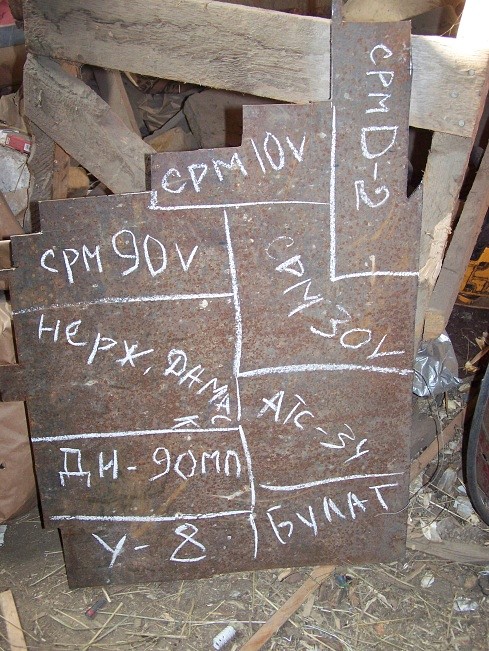 CPMD-2
CPM10V
CPM90V
CPM30V
НЕРЖ. ДАМАСК
АТС-34
ДИ-90МП
БУЛАТ
У-8